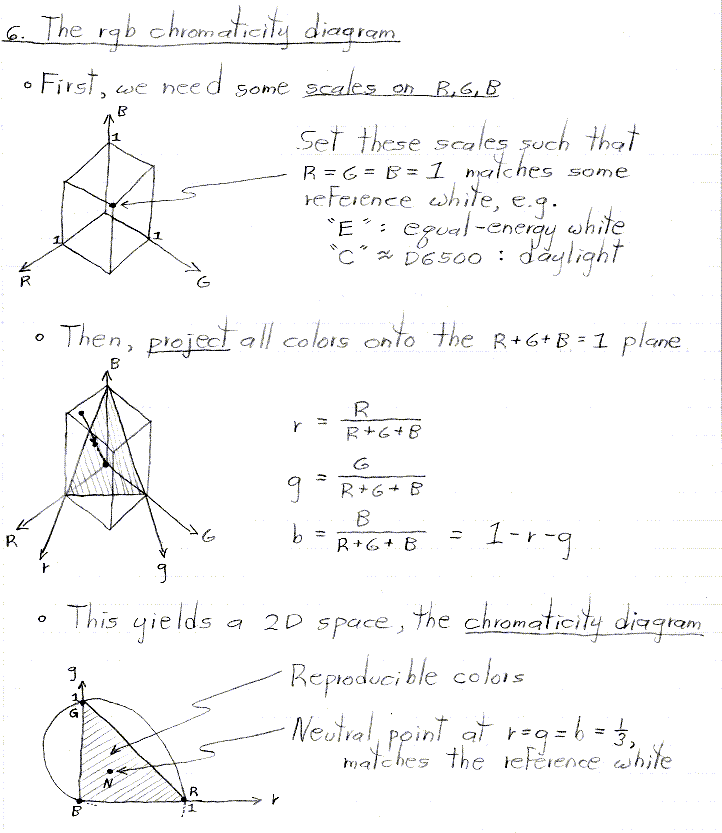 6. The rgb chromaticity diagram
• First, we need some scales on R,G,B
B
1
1
1
R
G
Set these scales such that
R = G = B = 1 matches some
reference white, e.g.
"E" : equal-energy white
"C" ≈ D6500 : daylight
• Then, project all colors onto the R+G+B = 1 plane
B
R
G
r
g
r = R / R+G+B
g = G / R+G+B
b = B / R+G+B = 1-r-g
• This yields a 2D space, the chromaticity diagram
g
1
G
N
B
R
1
r
Reproducible colors
Neutral point at r=g=b = 1/3,
matches the reference white